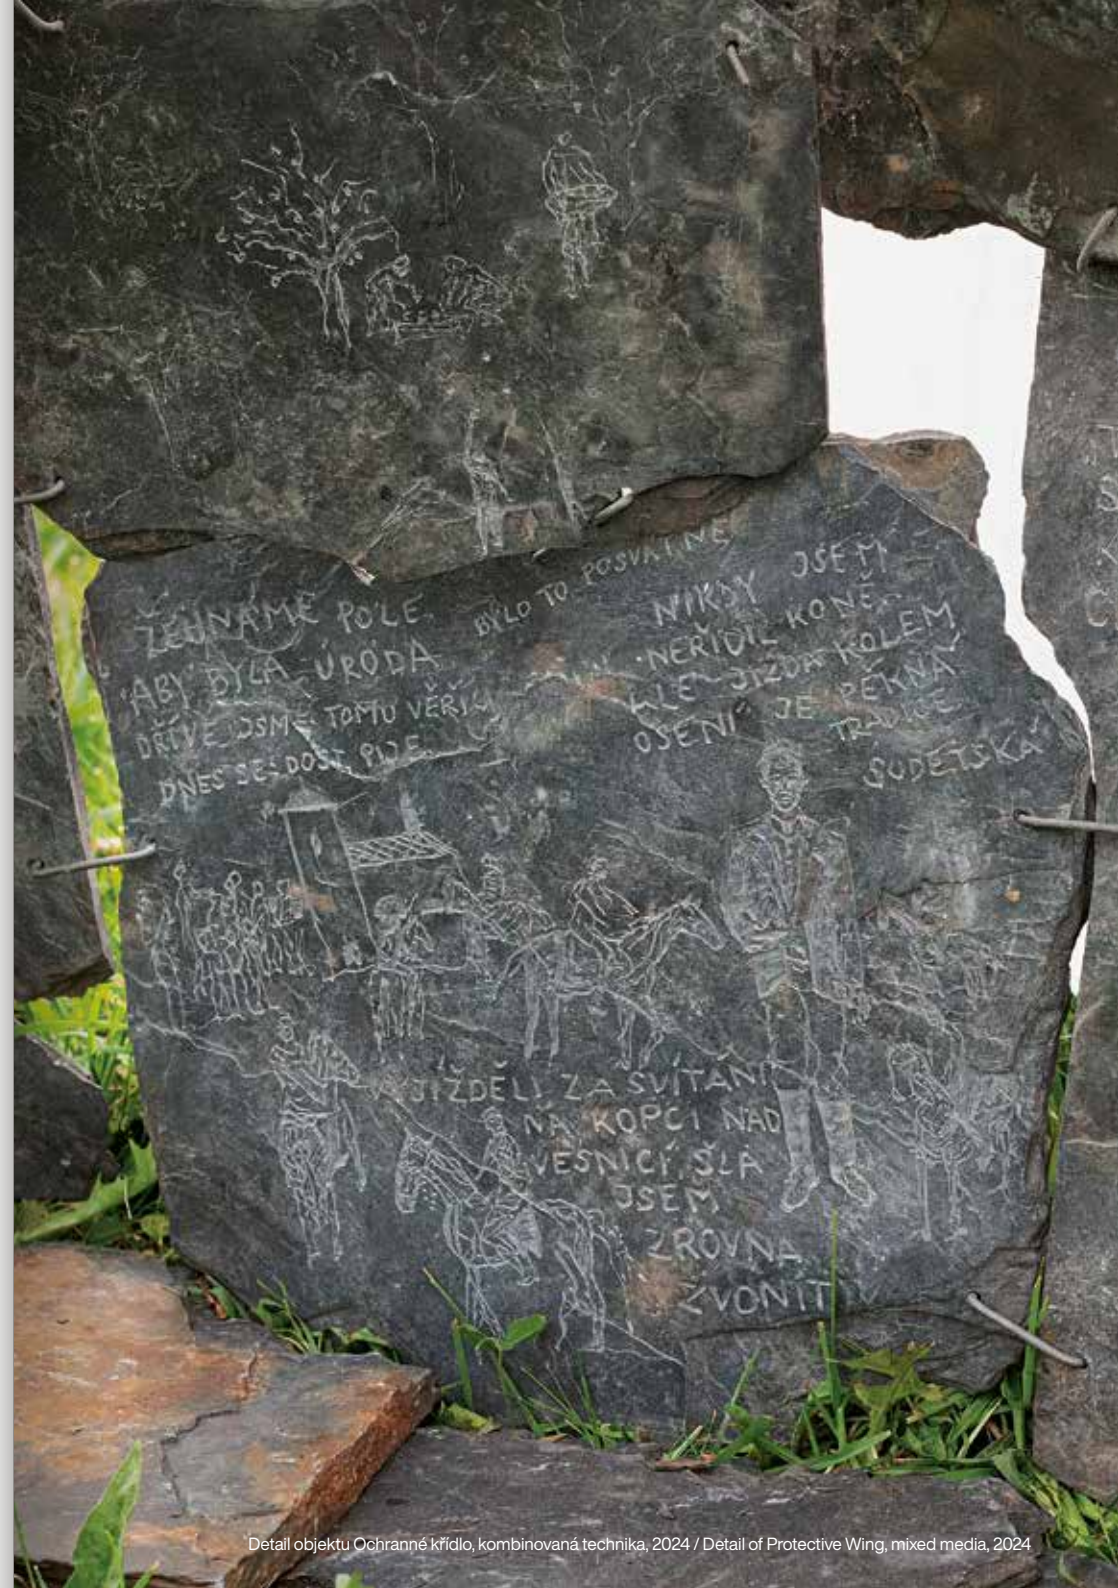 ŽEHNÁME POLE
ABY BYLA ÚRODA
DŘÍVE JSME TOMU VĚŘILI
DNES SE DOST PIJE
BYLO TO POSVÁTNÉ
NIKDY JSEM
NEŘÍDIL KONĚ
ALE "JÍZDA KOLEM
OSENÍ" JE PĚKNÁ
TRADICE
SUDETSKÁ
VYJÍŽDĚLI ZA SVÍTÁNÍ
NA KOPCI NAD
VESNICÍ, ŠLA
JSEM
ZROVNA
ZVONIT
Detail objektu Ochranné křídlo, kombinovaná technika, 2024 / Detail of Protective Wing, mixed media, 2024